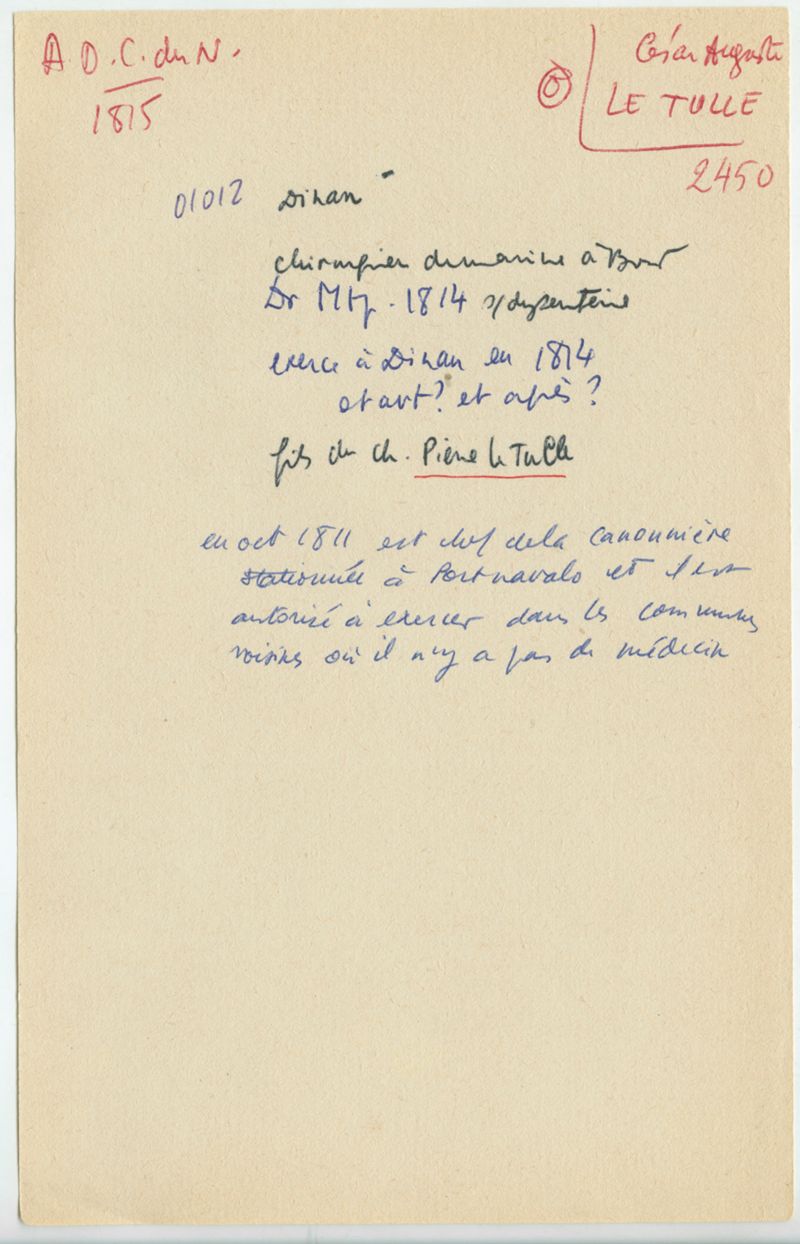 A.D.C. du N.
1815
César Auguste
LE TULLE
2450
01012 Dinan
chirurgien de marine à Brest
Dr Mtp. 1814 s/dysenterie
exerce à Dinan en 1814
et avt? et après?
fils du ch. Pierre Le Tulle
en oct 1811 est chef de la canonnière
stationnée à Portnavalo et il est
autorisé à exercer dans les communes
voisines où il n'y a pas de médecin